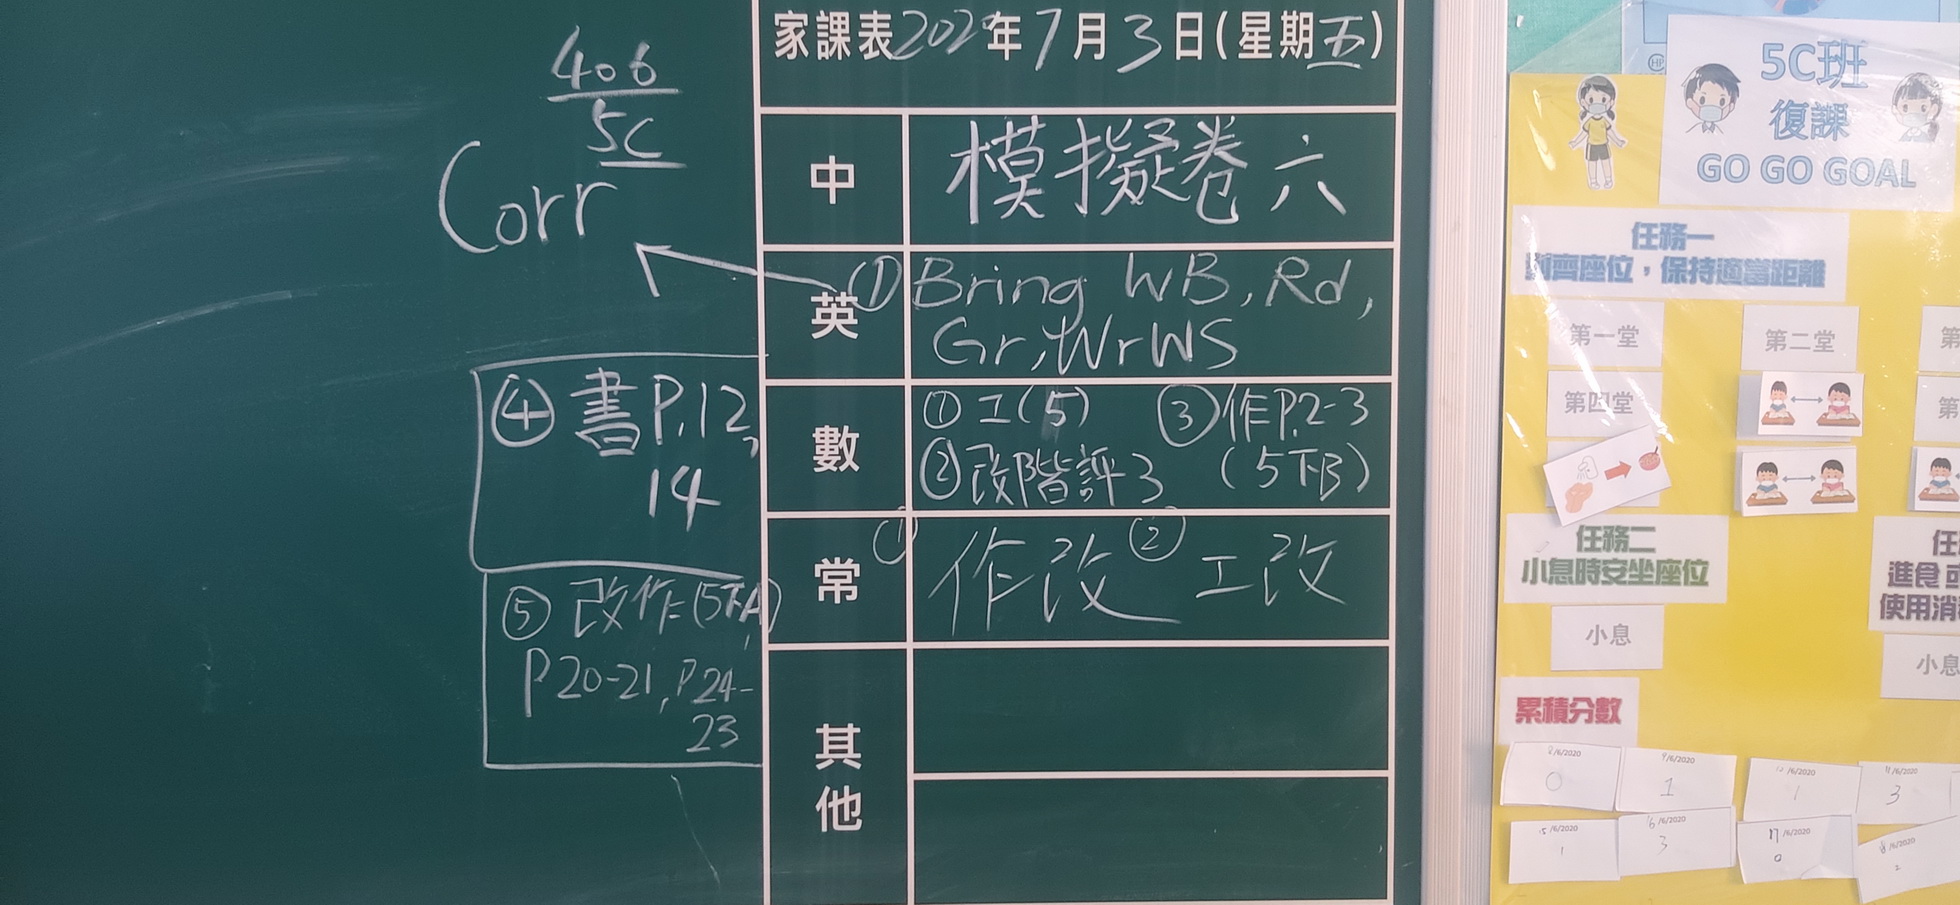 家課表2020年7月3日(星期五)
406
5C
Corr
中
模擬卷六
英
① Bring WB, Rd,
Gr, WrWS
數
① 工(5)
③ 作P.2-3
② 改階評3
(5下B)
④ 書P.12,
14
常
① 作改 ② 工改
⑤ 改作(5下A)
P20-21, P24-
23
其他
5C班
復課
GO GO GOAL
任務一
齊座位，保持適當距離
第一堂
第二堂
第
第四堂
第
任務二
小息時安坐座位
任
進食
使用消
小息
小息
累積分數
8/6/2020
0
9/6/2020
1
/6/2020
1
11/6/2020
3
15/6/2020
1
16/6/2020
3
17/6/2020
0
18/6/2020
2